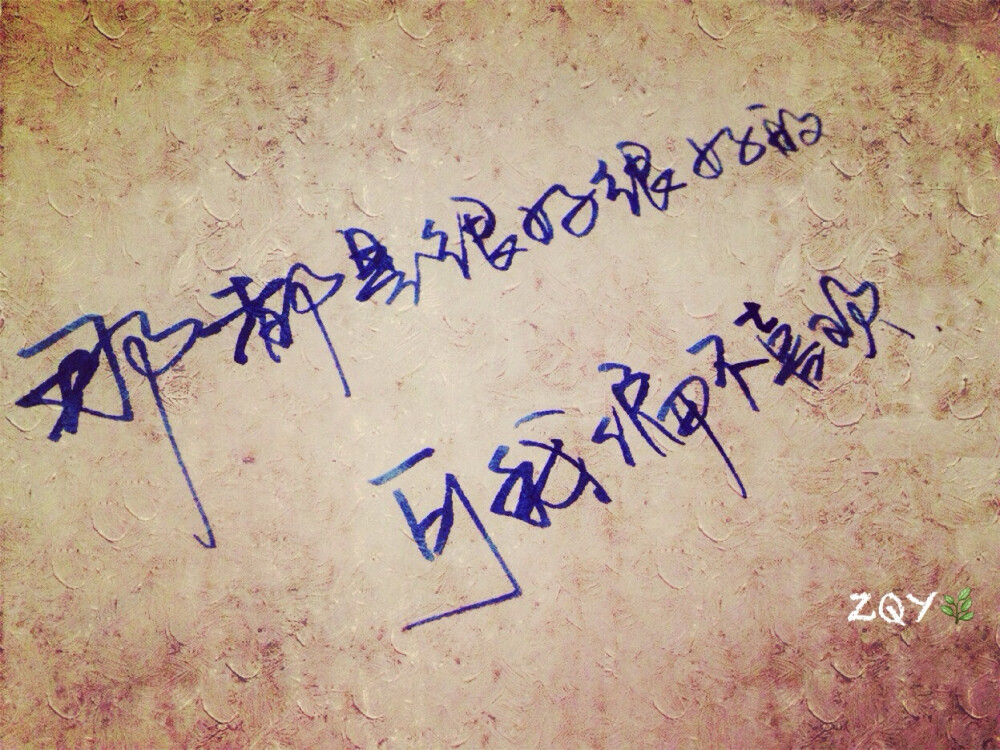 那都是很好很好的
可我偏不喜欢.
ZQY🌿